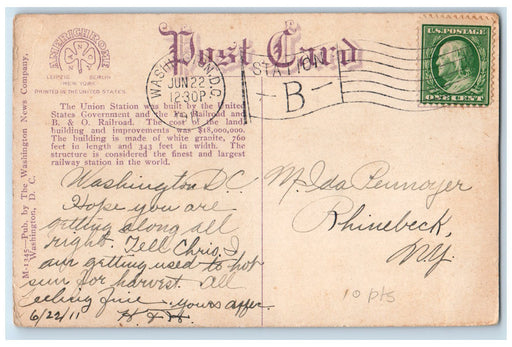 Post Card
AMERICHROME
LEIPZIG BERLIN
NEW YORK
PRINTED IN THE UNITED STATES
WASH D.C.
JUN 22
12-30P
STATION
B
U.S. POSTAGE
ONE CENT
The Union Station was built by the United
States Government and the Pa. Railroad and
B. & O. Railroad. The cost of the land
building and improvements was $18,000,000.
The building is made of white granite, 760
feet in length and 343 feet in width. The
structure is considered the finest and largest
railway station in the world.
M-1345—Pub. by The Washington News Company,
Washington, D. C.
Washington D.C.
Hope you are
getting along all
right. Tell Chris. I
am getting used to hot
sun for harvest. All
feeling fine. yours affec.
6/22/11
Ida Pennoyer
Rhinebeck,
N.Y.
10 pts